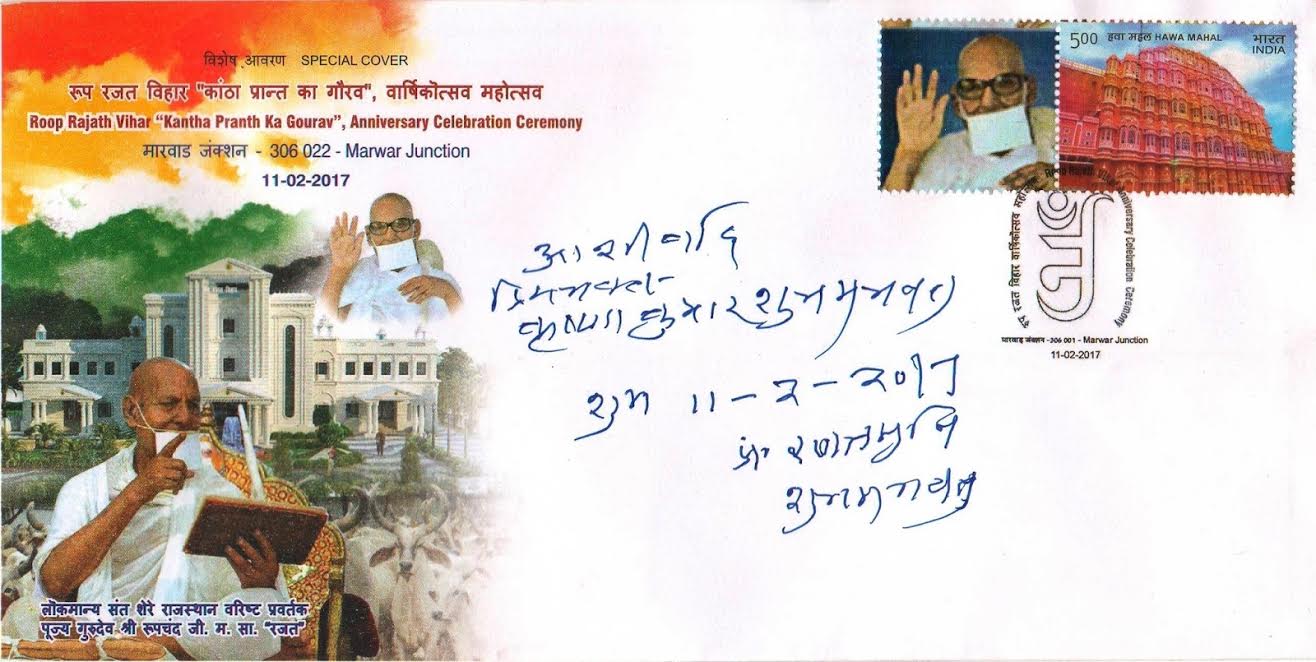 विशेष आवरण SPECIAL COVER
रूप रजत विहार "कांठा प्रान्त का गौरव", वार्षिकोत्सव महोत्सव
Roop Rajath Vihar "Kantha Pranth Ka Gourav", Anniversary Celebration Ceremony
मारवाड जंक्शन - 306 022 - Marwar Junction
11-02-2017
5.00 हवा महल HAWA MAHAL भारत
INDIA
रूप रजत विहार वार्षिकोत्सव महोत्सव Roop Rajath Vihar Anniversary Celebration Ceremony
मारवाड जंक्शन -306 001 - Marwar Junction
11-02-2017
रूप रजत विहार
आशीर्वाद
कुमार
शुभ 11-2-2017
लोकमान्य संत शेरे राजस्थान वरिष्ट प्रवर्तक
पूज्य गुरुदेव श्री रूपचंद जी. म. सा. "रजत"